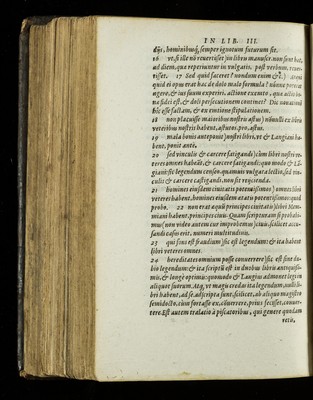 IN LIB. III.
dijs, hominibusq́; semper ignotum futurum sit.
16 vt si ille nō reuertisset) in libris manuscr. non sunt hæc,
ad diem. quæ reperiuntur in vulgatis. post verbum, reuer-
tisset. 17 Sed quid faceret? nondum enim &c.)
quid ei opus erat hac de dolo malo formula?
ungere, & ius suum experiri. actione ex
na fidei est, & doli persecutionem continet?
hîc esse factam, & an emtione stipulationem.
18 non placuisse maioribus nostris astus) nōnulli ex libris
veteribus nostris habent, astutos. pro, astus.
19 mala bonis anteponit) nostri libri, vt & Langiani ha-
bent, ponit ante.
20 sed vinculis & carcere fatigandi) cùm libri nostri ve-
teres omnes habeāt, & carcere fatigandi: quo modo & Lā-
gianí: sic legendum censeo. quamuis vulgata lectio, sed vin-
culis & carcere castigandi, non sit reijcienda.
21 homines eiusdem ciuitatis potentissimos) omnes libri
veteres habent, homines eiusdem ætatis potentissimos: quod
probo. 22 non erat aquā principes ciuitatis) libri Mem-
miani habent, principes ciuis. Quam scripturam si probabi-
mus (non video autem cur improbemus) ciuis, scilicet accu-
sandi casus erit, numeri multitudinis.
23 qui sint ij fraudium) sic est legendum: & ita habent
libri veteres omnes.
24 hereditates omnium posse conuerrere) sic est sine du-
bio legendum: & ita scripsi est in duobus libris antiquissi-
mis, & longè optimis: quomodo & Langius admonet legi in
aliquot suorum. Atq, vt magis credas ita legendum, nulli li-
bri habent, ad se. adscripta sunt, scilicet, ab aliquo magistro
semidocto. cùm fortasse ex, cōuerrere, prius fecisset, conuer-
tere. Est autem tralatio à piscatoribus, qui genere quodam
retis,